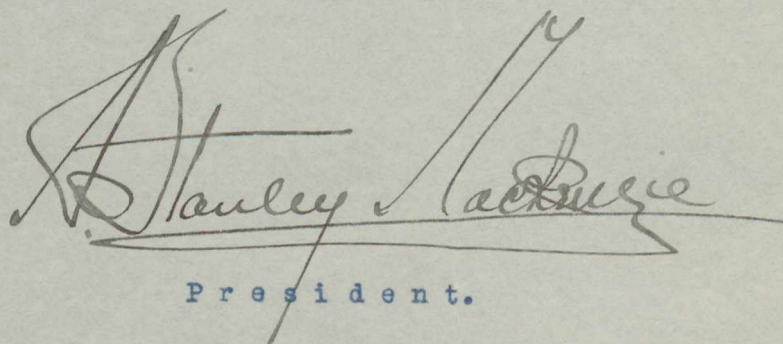 A Stanley MacKenzie
President.